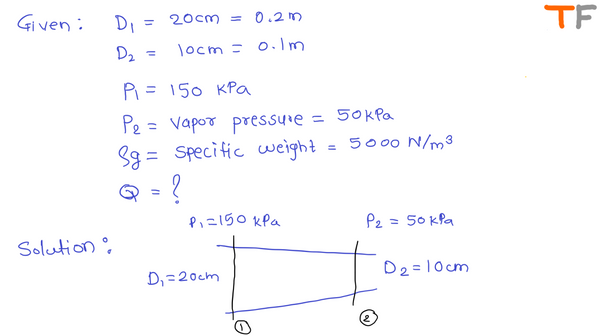 TF
Given: D1 = 20cm = 0.2m
D2 = 10cm = 0.1m
P1 = 150 kPa
P2 = vapor pressure = 50kPa
ρg = specific weight = 5000 N/m³
Q = ?
P1 = 150 kPa P2 = 50kPa
Solution:
D1 = 20cm D2 = 10cm
① ②